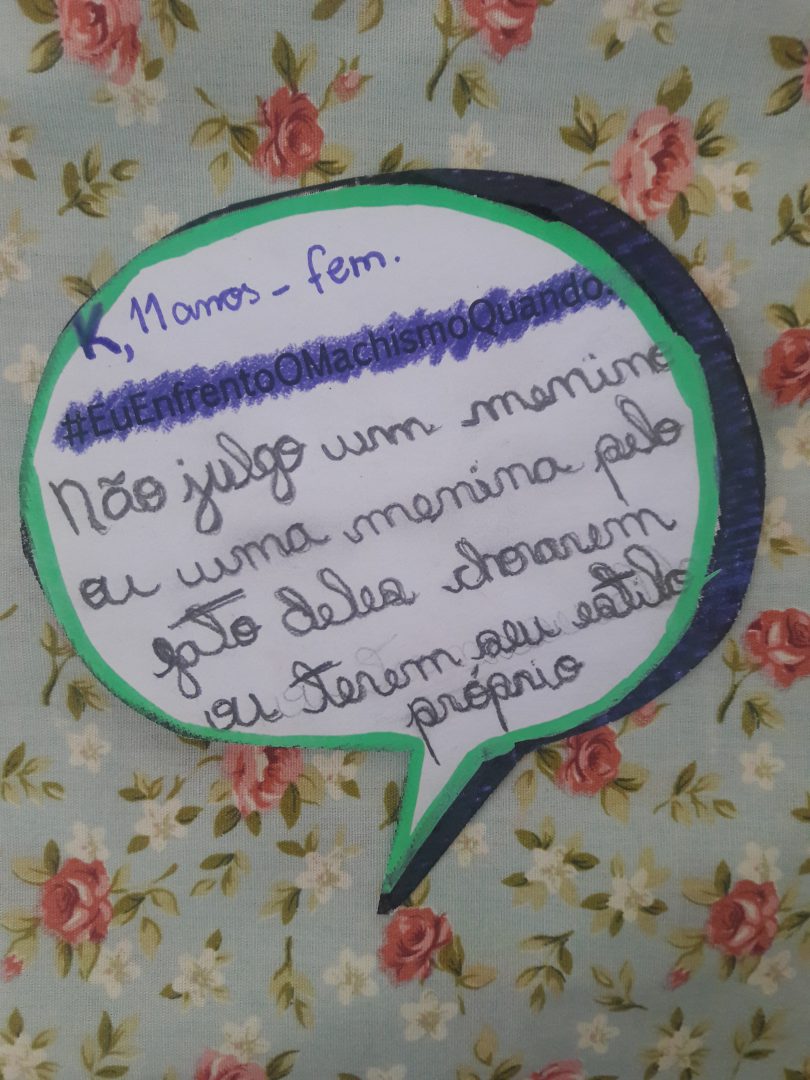 K, 11 anos - fem.
#EuEnfrentoOMachismoQuando...
Não julgo um menino
ou uma menina pelo
fato deles chorarem
ou terem seu estilo
próprio